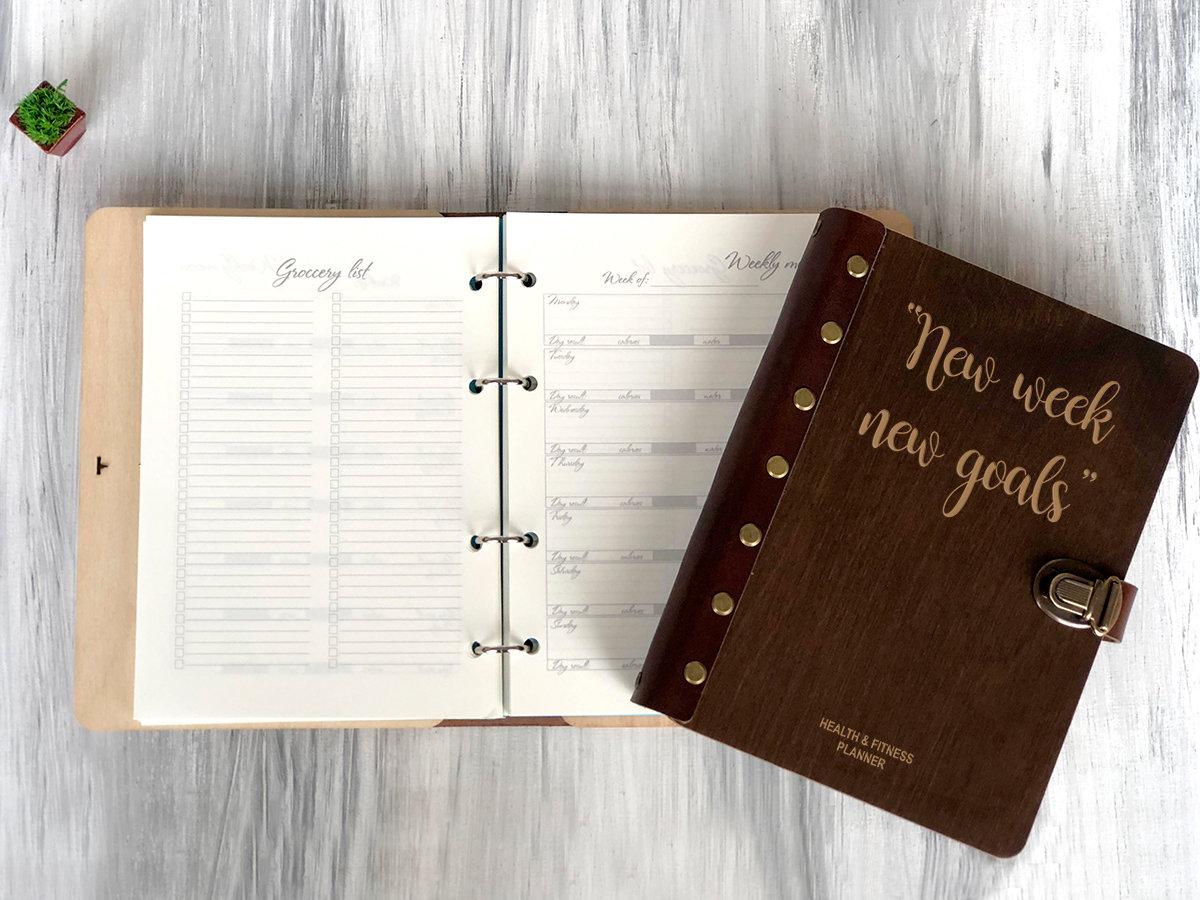 Groccery list
Weekly m
Week of:
Monday
Day result calories water
Tuesday
Day result calories water
Wednesday
Day result calories water
Thursday
Day result calories
Friday
Day result calories
Saturday
Day result calories
Sunday
Day result
"New week
new goals"
HEALTH & FITNESS
PLANNER